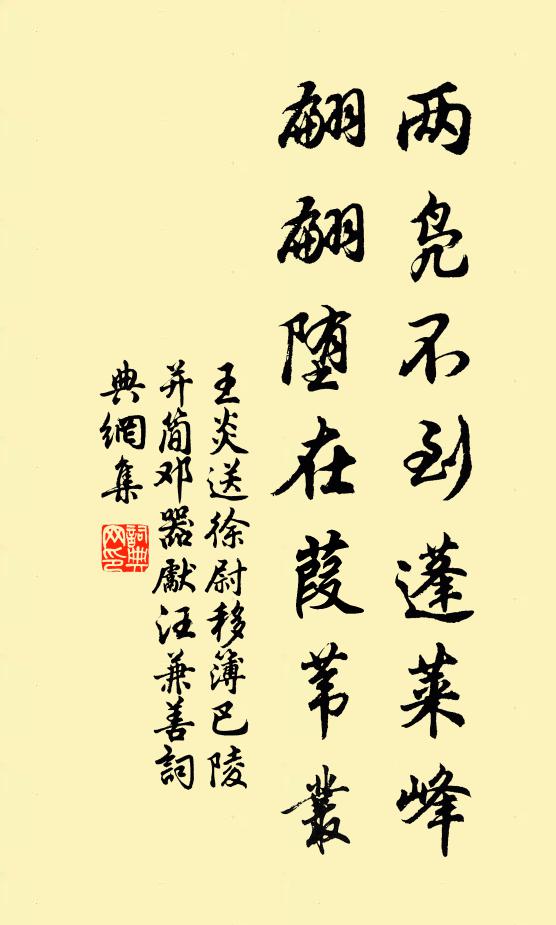 两凫不到蓬莱峰
翩翩堕在葭苇叢
王炎送徐尉移簿巴陵
并简邓器獻汪兼善詞
典網集
詞典
网印